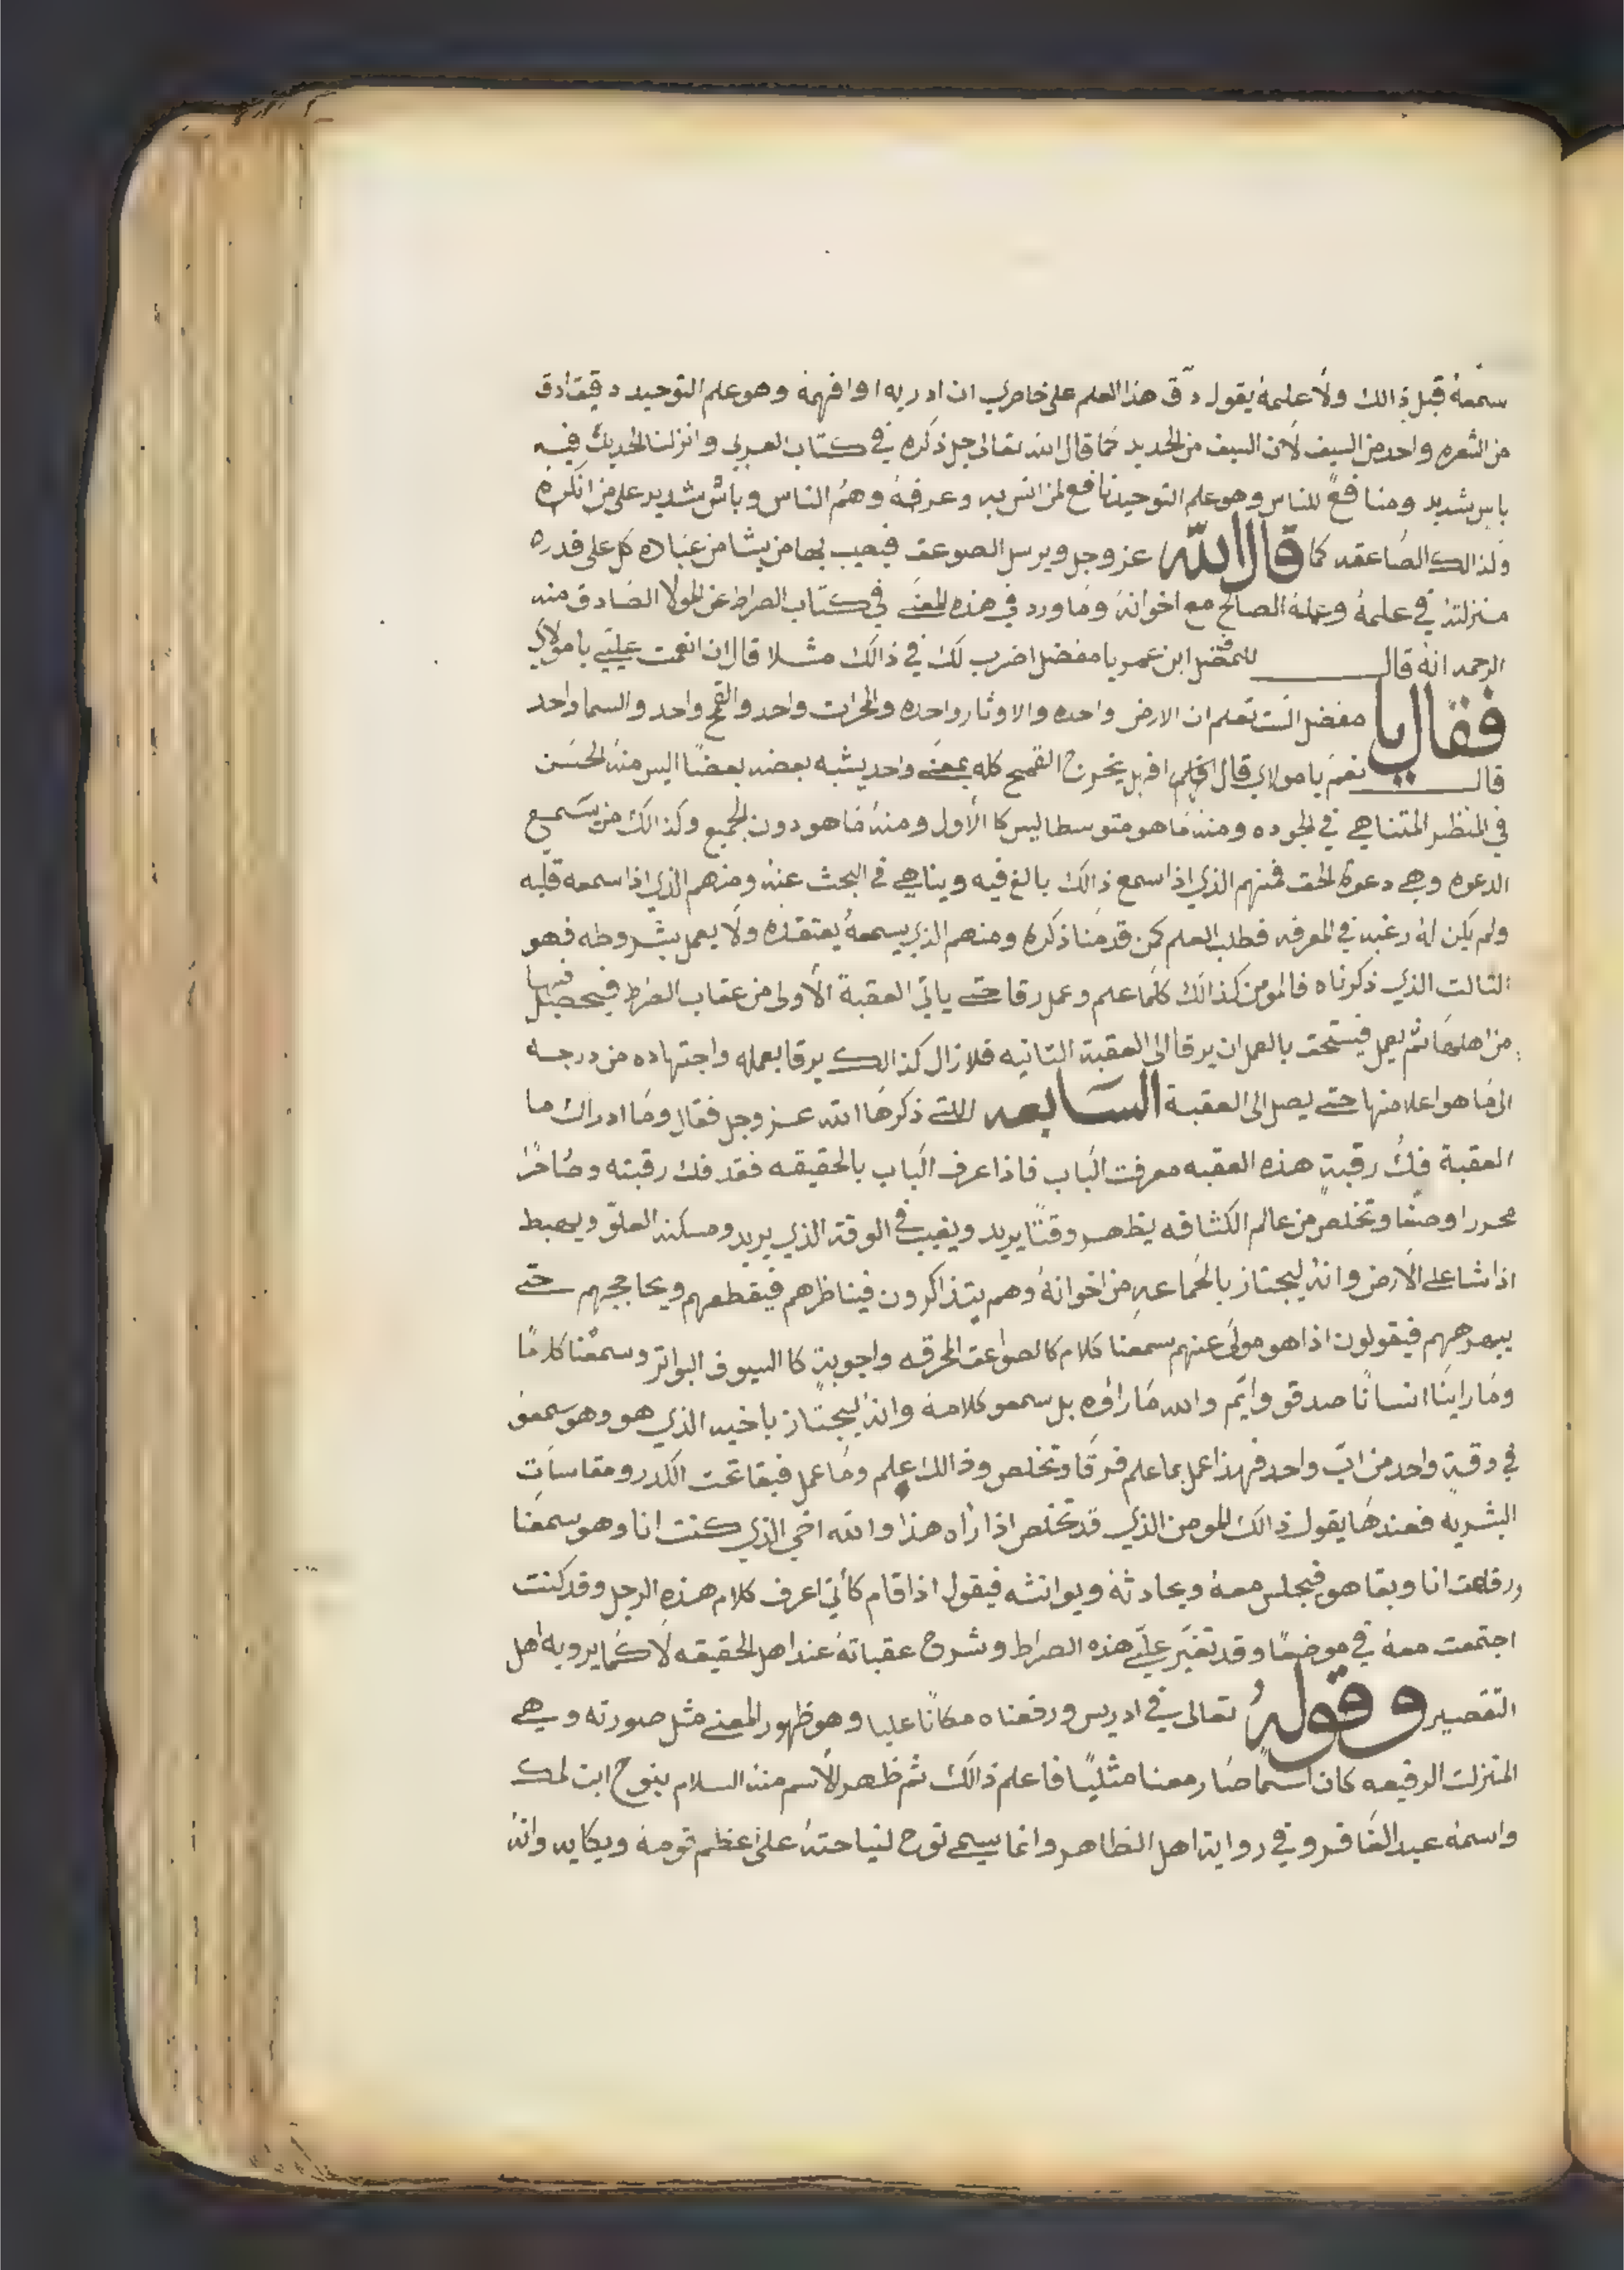 سمعهُ قبل ذالك ولا علمهُ يقول دق هذا العلم على خاطري ان ادريه او افهمهُ وهو علم التوحيد دقيق ادق
من الشعره واحد من السيف لان السيف من الحديد كما قال الله تعالى جل ذكره في كتاب العربي وانزلنا الحديد فيه
باس شديد ومنافعٌ للناس وهو علم التوحيد نافع لمن انس به وعرفهُ وهم الناس وباس شديد على من انكره
ولذالك الصاعقه كما قال الله عز وجل ويرسل الصوعق فيصيب بها من يشا من عباده كل على قدره
منزلتهُ في علمهُ وعملهُ الصالح مع اخوانهُ وما ورد في هذه المعنى في كتاب الصراط عن المولا الصادق منه
الرحمه انهُ قال للمفضل ابن عمر يا مفضل اضرب لك في ذالك مثلا قال ان انعمت عليّي يا مولاي
فقال يا مفضل الست تعلم ان الارض واحده والاوثار واحده والحراث واحد والقمح واحد والسما واحد
قال نعم يا مولاي قال افهل يخرج القمح كله بمعنى واحد يشبه بعضه بعضًا اليس منهُ الحسن
في المنظر المتناهي في الجوده ومنهُ ما هو متوسطا ليس كا الأول ومنهُ ما هو دون الجميع وكذالك من يسمع
الدعوه وهي دعوة الحق فمنهم الذي اذا سمع ذالك بالغ فيه ويناهي في البحث عنهُ ومنهم الذي اذا سمعه قلبه
ولم يكن لهُ رغبه في المعرفه فطلب العلم كمن قدمنا ذكره ومنهم الذي يسمعهُ يعتقده ولا يعمل بشروطه فهو
التالت الذي ذكرناه فالمومن كذالك كلما علم وعمل رقا حتى ياتي العقبة الأولى من عقاب الصراط فيحصل فيها
من اهلها ثم يعمل فيستحق بالعمل ان يرقا الى العقبة التانيه فلا زال كذالك يرقا بعمله واجتهاده من درجه
الى ما هو اعلا منها حتى يصل الى العقبة السابعه اللتي ذكرها الله عز وجل فقال وما ادراك ما
العقبة فكُّ رقبةٍ هذه العقبه معرفت الباب فاذا عرف الباب بالحقيقه فقد فك رقبته وصار حرًا
محررا وصفا وتخلص من عالم الكثافه يظهر وقتًا يريد ويغيب في الوقة الذي يريد ومسكنه العلوّ ويهبط
اذا شا على الارض وانهُ ليجتاز بالجماعهِ من اخوانهُ وهم يتذاكرون فيناظرهم فيقطعهم ويحاججهم حتى
يبهرهم فيقولون اذا هو مولى عنهم سمعنا كلام كالصواعق المحرقه واجوبةٍ كا السيوف البواتر وسمعنا كلامًا
وما راينا انسانًا صدقو وأيّم والله ما راؤه بل سمعو كلامهُ وانهُ ليجتاز باخيه الذي هو وهو سمعو
في وقةٍ واحد من ابّ واحد فهذا عمل بما علم فرقا وتخلص وذالك علم وما عمل فبقا تحت الكدر ومقاسات
البشريه فعندها يقول ذالك المومن الذي قد تخلص اذا رأه هذا والله اخي الذي كنت انا وهو سمعنا
ورقعت انا وبقا هو فيجلس معهُ ويحادثهُ ويوانسه فيقول اذا قام كأني اعرف كلام هذه الرجل وقد كنت
اجتمعت معهُ في موضعًا وقد تغيّر عليّي هذه الصراط وشرح عقباتهُ عند اهل الحقيقه لا كما يرويه اهل
التقصير وقولهُ تعالى في ادريس ورفعناه مكانًا عليا وهو ظهور المعنى مثل صورته وهي
المنزلت الرفيعه كان اسمًا صار معنا مثليًا فاعلم ذالك ثم ظهر الأسم منهُ السلام بنوح ابن لمك
واسمهُ عبد الغافر وفي رواية اهل الظاهر وانما سمي نوح لنياحتهُ على عظم قومهُ وبكايه وانهُ